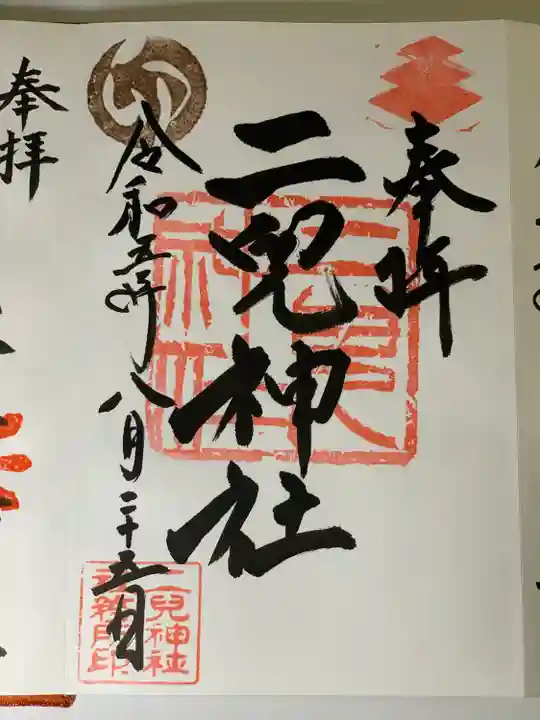 奉拝
二兒神社
令和五年八月二十五日
二兒神社
社務所印
奉拝